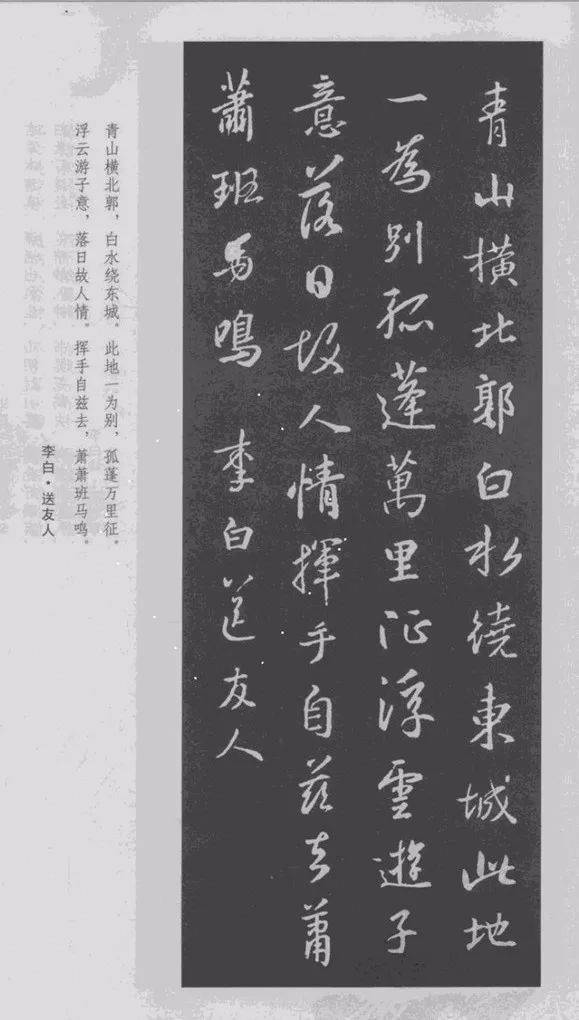 青山橫北郭白水繞東城此地
一為別孤蓬萬里征浮雲遊子
意落日故人情揮手自茲去蕭
蕭班馬鳴 李白送友人
青山横北郭，白水绕东城。此地一为别，孤蓬万里征。
浮云游子意，落日故人情。挥手自兹去，萧萧班马鸣。
李白·送友人